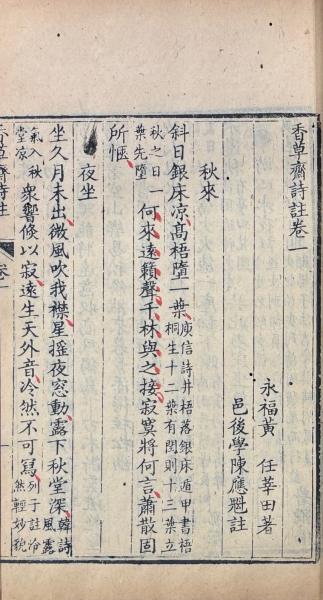 香草齋詩註卷一
永福黃 任莘田著
邑後學陳應魁註
秋來
斜日銀床凉高梧墮一葉庾信詩井梧落銀床遁甲書梧桐生十二葉有閏則十三葉立
秋之日一葉先墮何來遠籟聲千林與之接寂寞將何言蕭散固
所愜
夜坐
坐久月未出微風吹我襟星摇夜窓動露下秋堂深韓詩風露
氣入秋堂凉衆響倏以寂遠生天外音冷然不可寫列子註泠然輕妙貌
香草齋詩註 卷一 一